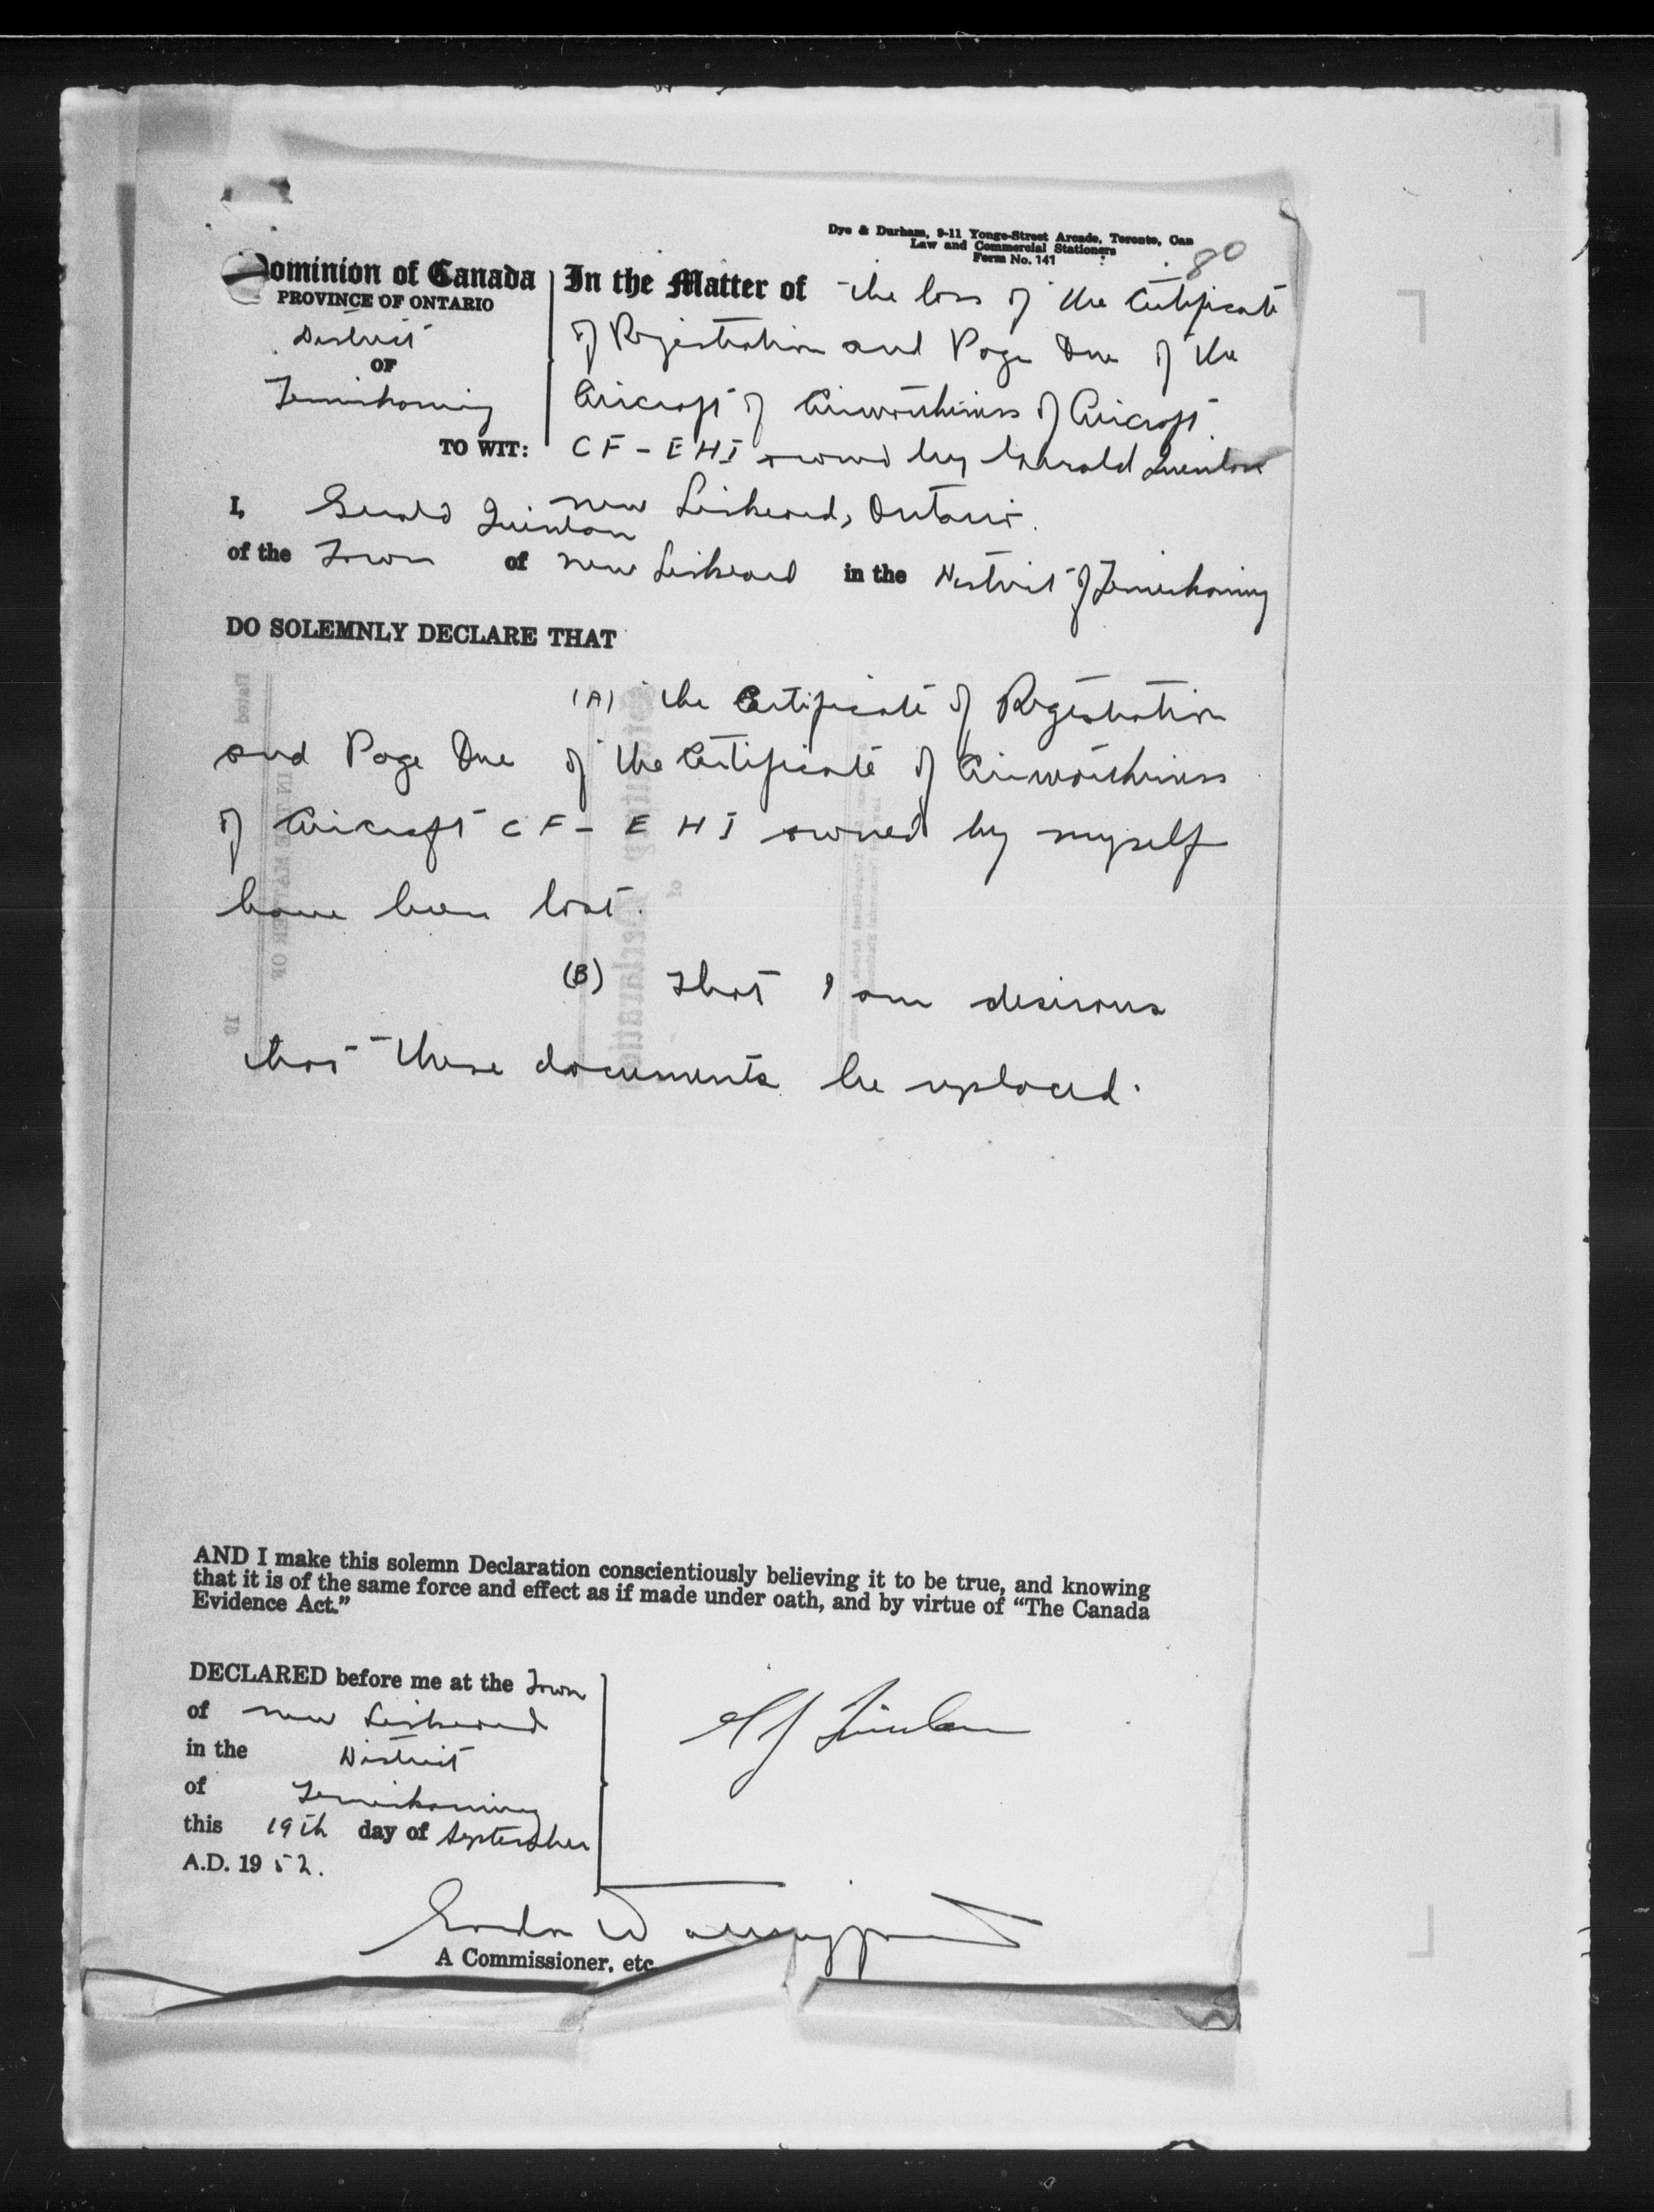 Dye & Durham, 9-11 Yonge-Street Arcade, Toronto, Can
Law and Commercial Stationers
Form No. 141
80
Dominion of Canada
PROVINCE OF ONTARIO
District
OF
Temiskaming
TO WIT:
In the Matter of the loss of the Certificate
of Registration and Page One of the
Aircraft of Airworthiness of Aircraft
CF-EHI owned by Gerald Quinlan
New Liskeard, Ontario.
I, Gerald Quinlan
of the Town of New Liskeard in the District of Temiskaming
DO SOLEMNLY DECLARE THAT
(A) the Certificate of Registration
and Page One of the Certificate of Airworthiness
of Aircraft CF-EHI owned by myself
have been lost.
(B) That I am desirous
that these documents be replaced.
AND I make this solemn Declaration conscientiously believing it to be true, and knowing
that it is of the same force and effect as if made under oath, and by virtue of "The Canada
Evidence Act."
DECLARED before me at the Town
of New Liskeard
in the District
of Temiskaming
this 19th day of September
A.D. 1952.
Quinlan
Gordon W
A Commissioner, etc.
Dated
19
IN THE MATTER OF
Statutory Declaration
of